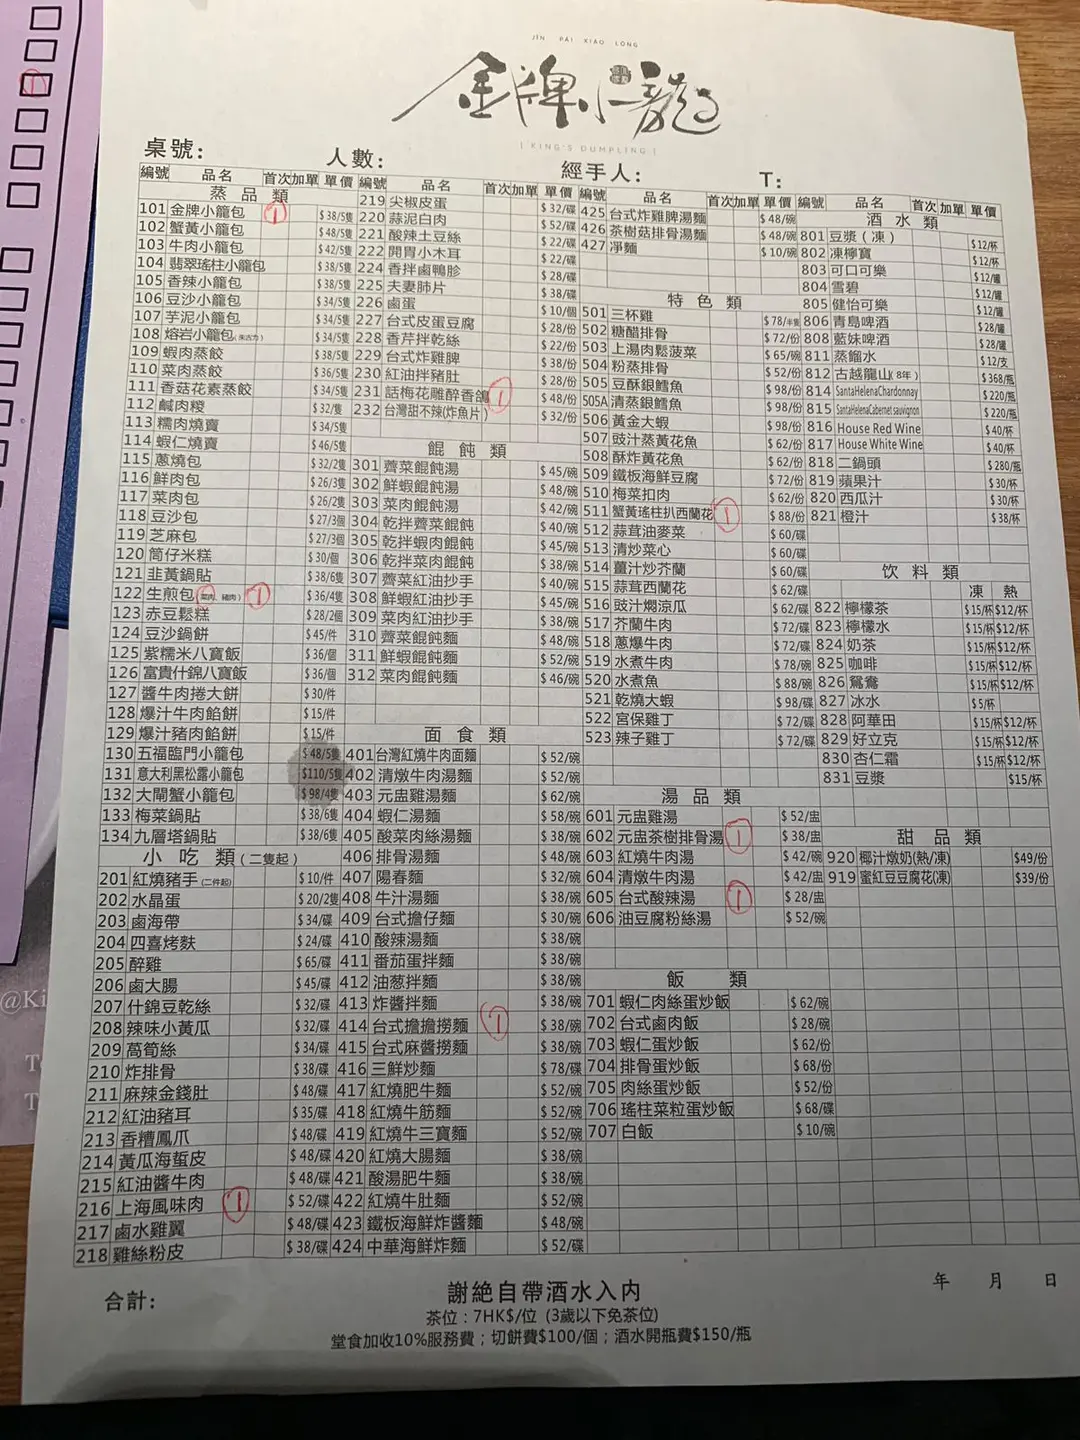 JIN PAI XIAO LONG
金牌小龍
[ KING'S DUMPLING ]
桌號: 人數: 經手人: T:
編號 品名 首次 加單 單價 編號 品名 首次 加單 單價 編號 品名 首次 加單 單價 編號 品名 首次 加單 單價
蒸品類
101 金牌小籠包 1 $38/5隻
102 蟹黃小籠包 $48/5隻
103 牛肉小籠包 $42/5隻
104 翡翠瑤柱小籠包 $38/5隻
105 香辣小籠包 $38/5隻
106 豆沙小籠包 $34/5隻
107 芋泥小籠包 $34/5隻
108 熔岩小籠包(朱古力) $34/5隻
109 蝦肉蒸餃 $38/5隻
110 菜肉蒸餃 $36/5隻
111 香菇花素蒸餃 $34/5隻
112 鹹肉糉 $32/隻
113 糯肉燒賣 $34/5隻
114 蝦仁燒賣 $46/5隻
115 蔥燒包 $32/2隻
116 鮮肉包 $26/3隻
117 菜肉包 $26/2隻
118 豆沙包 $27/3個
119 芝麻包 $27/3個
120 筒仔米糕 $30/個
121 韭黃鍋貼 $38/6隻
122 生煎包(菜肉、豬肉) 1 $36/4隻
123 赤豆鬆糕 $28/2個
124 豆沙鍋餅 $45/件
125 紫糯米八寶飯 $36/個
126 富貴什錦八寶飯 $36/個
127 醬牛肉捲大餅 $30/件
128 爆汁牛肉餡餅 $15/件
129 爆汁豬肉餡餅 $15/件
130 五福臨門小籠包 $48/5隻
131 意大利黑松露小籠包 $110/5隻
132 大閘蟹小籠包 $98/4隻
133 梅菜鍋貼 $38/6隻
134 九層塔鍋貼 $38/6隻
小吃類(二隻起)
201 紅燒豬手(二件起) $10/件
202 水晶蛋 $20/2隻
203 鹵海帶 $34/碟
204 四喜烤麩 $24/碟
205 醉雞 $65/碟
206 鹵大腸 $45/碟
207 什錦豆乾絲 $32/碟
208 辣味小黃瓜 $32/碟
209 萵筍絲 $34/碟
210 炸排骨 $38/碟
211 麻辣金錢肚 $48/碟
212 紅油豬耳 $35/碟
213 香糟鳳爪 $48/碟
214 黃瓜海蜇皮 $48/碟
215 紅油醬牛肉 $48/碟
216 上海風味肉 1 $52/碟
217 鹵水雞翼 $48/碟
218 雞絲粉皮 $38/碟
219 尖椒皮蛋 $32/碟
220 蒜泥白肉 $52/碟
221 酸辣土豆絲 $22/碟
222 開胃小木耳 $22/碟
224 香拌鹵鴨胗 $28/碟
225 夫妻肺片 $38/碟
226 鹵蛋 $10/個
227 台式皮蛋豆腐 $28/份
228 香芹拌乾絲 $22/份
229 台式炸雞脾 $38/份
230 紅油拌豬肚 $28/份
231 話梅花雕醉香鴿 1 $48/份
232 台灣甜不辣(炸魚片) $32/份
餛飩類
301 薺菜餛飩湯 $45/碗
302 鮮蝦餛飩湯 $48/碗
303 菜肉餛飩湯 $42/碗
304 乾拌薺菜餛飩 $40/碗
305 乾拌蝦肉餛飩 $45/碗
306 乾拌菜肉餛飩 $38/碗
307 薺菜紅油抄手 $40/碗
308 鮮蝦紅油抄手 $45/碗
309 菜肉紅油抄手 $38/碗
310 薺菜餛飩麵 $48/碗
311 鮮蝦餛飩麵 $52/碗
312 菜肉餛飩麵 $46/碗
面食類
401 台灣紅燒牛肉面麵 $52/碗
402 清燉牛肉湯麵 $52/碗
403 元盅雞湯麵 $62/碗
404 蝦仁湯麵 $58/碗
405 酸菜肉絲湯麵 $38/碗
406 排骨湯麵 $48/碗
407 陽春麵 $32/碗
408 牛汁湯麵 $38/碗
409 台式擔仔麵 $30/碗
410 酸辣湯麵 $38/碗
411 番茄蛋拌麵 $38/碗
412 油葱拌麵 $38/碗
413 炸醬拌麵 $38/碗
414 台式擔擔撈麵 1 $38/碗
415 台式麻醬撈麵 $38/碗
416 三鮮炒麵 $78/碟
417 紅燒肥牛麵 $52/碗
418 紅燒牛筋麵 $52/碗
419 紅燒牛三寶麵 $52/碗
420 紅燒大腸麵 $38/碗
421 酸湯肥牛麵 $38/碗
422 紅燒牛肚麵 $52/碗
423 鐵板海鮮炸醬麵 $48/碗
424 中華海鮮炸麵 $52/碟
425 台式炸雞脾湯麵 $48/碗
426 茶樹菇排骨湯麵 $48/碗
427 凈麵 $10/碗
特色類
501 三杯雞 $78/半隻
502 糖醋排骨 $72/份
503 上湯肉鬆菠菜 $65/碗
504 粉蒸排骨 $52/份
505 豆酥銀鱈魚 $98/份
505A 清蒸銀鱈魚 $98/份
506 黃金大蝦 $98/份
507 豉汁蒸黃花魚 $62/份
508 酥炸黃花魚 $62/份
509 鐵板海鮮豆腐 $72/份
510 梅菜扣肉 $62/份
511 蟹黃瑤柱扒西蘭花 1 $88/份
512 蒜茸油麥菜 $60/碟
513 清炒菜心 $60/碟
514 薑汁炒芥蘭 $60/碟
515 蒜茸西蘭花 $62/碟
516 豉汁燜涼瓜 $62/碟
517 芥蘭牛肉 $72/碟
518 蔥爆牛肉 $72/碟
519 水煮牛肉 $78/碗
520 水煮魚 $88/碗
521 乾燒大蝦 $98/碟
522 宮保雞丁 $72/碟
523 辣子雞丁 $72/碟
湯品類
601 元盅雞湯 $52/盅
602 元盅茶樹排骨湯 1 $38/盅
603 紅燒牛肉湯 $42/碗
604 清燉牛肉湯 $42/盅
605 台式酸辣湯 1 $28/盅
606 油豆腐粉絲湯 $52/碗
飯類
701 蝦仁肉絲蛋炒飯 $62/碗
702 台式鹵肉飯 $28/碗
703 蝦仁蛋炒飯 $62/份
704 排骨蛋炒飯 $68/份
705 肉絲蛋炒飯 $52/份
706 瑤柱菜粒蛋炒飯 $68/碟
707 白飯 $10/碗
酒水類
801 豆漿(凍) $12/杯
802 凍檸寶 $12/杯
803 可口可樂 $12/罐
804 雪碧 $12/罐
805 健怡可樂 $12/罐
806 青島啤酒 $28/罐
808 藍妹啤酒 $28/罐
811 蒸餾水 $12/支
812 古越龍山(8年) $368/瓶
814 SantaHelenaChardonnay $220/瓶
815 SantaHelenaCabernet sauvignon $220/瓶
816 House Red Wine $40/杯
817 House White Wine $40/杯
818 二鍋頭 $280/瓶
819 蘋果汁 $30/杯
820 西瓜汁 $30/杯
821 橙汁 $38/杯
饮料類
凍 熱
822 檸檬茶 $15/杯 $12/杯
823 檸檬水 $15/杯 $12/杯
824 奶茶 $15/杯 $12/杯
825 咖啡 $15/杯 $12/杯
826 鴛鴦 $15/杯 $12/杯
827 冰水 $5/杯
828 阿華田 $15/杯 $12/杯
829 好立克 $15/杯 $12/杯
830 杏仁霜 $15/杯 $12/杯
831 豆漿 $15/杯
甜品類
920 椰汁燉奶(熱/凍) $49/份
919 蜜紅豆豆腐花(凍) $39/份
合計:
謝絶自帶酒水入内
年 月 日
茶位:7HK$/位 (3歲以下免茶位)
堂食加收10%服務費;切餅費$100/個;酒水開瓶費$150/瓶
@Ki